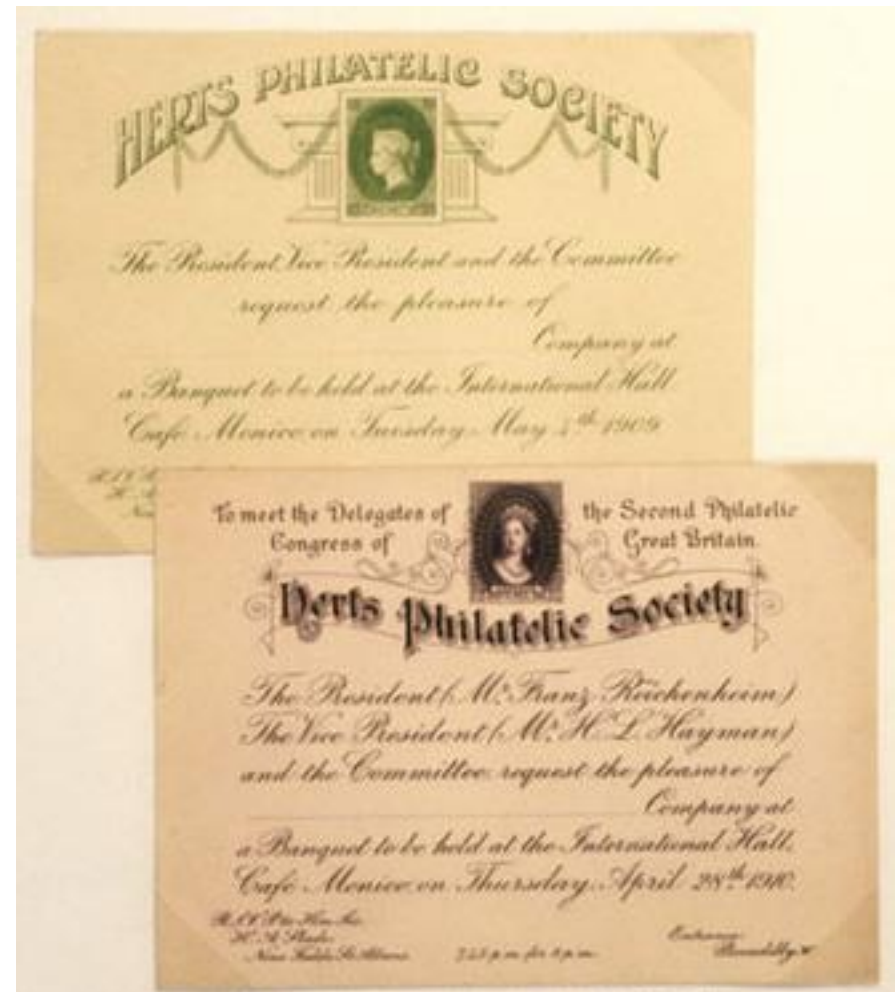 HERTS PHILATELIC SOCIETY
The President, Vice President and the Committee
request the pleasure of
Company at
a Banquet to be held at the International Hall
Café Monico on Tuesday May 4th 1909
To meet the Delegates of the Second Philatelic
Congress of Great Britain.
Herts Philatelic Society
The President (Mr. Franz Reichenheim)
The Vice President (Mr. H. L. Hayman)
and the Committee request the pleasure of
Company at
a Banquet to be held at the International Hall,
Café Monico, on Thursday, April 28th 1910.
R.S.V.P. to Hon. Sec.
H. A. Slade
Nine Fields St. Albans
7.45 p.m. for 8 p.m.
Entrance
Piccadilly W